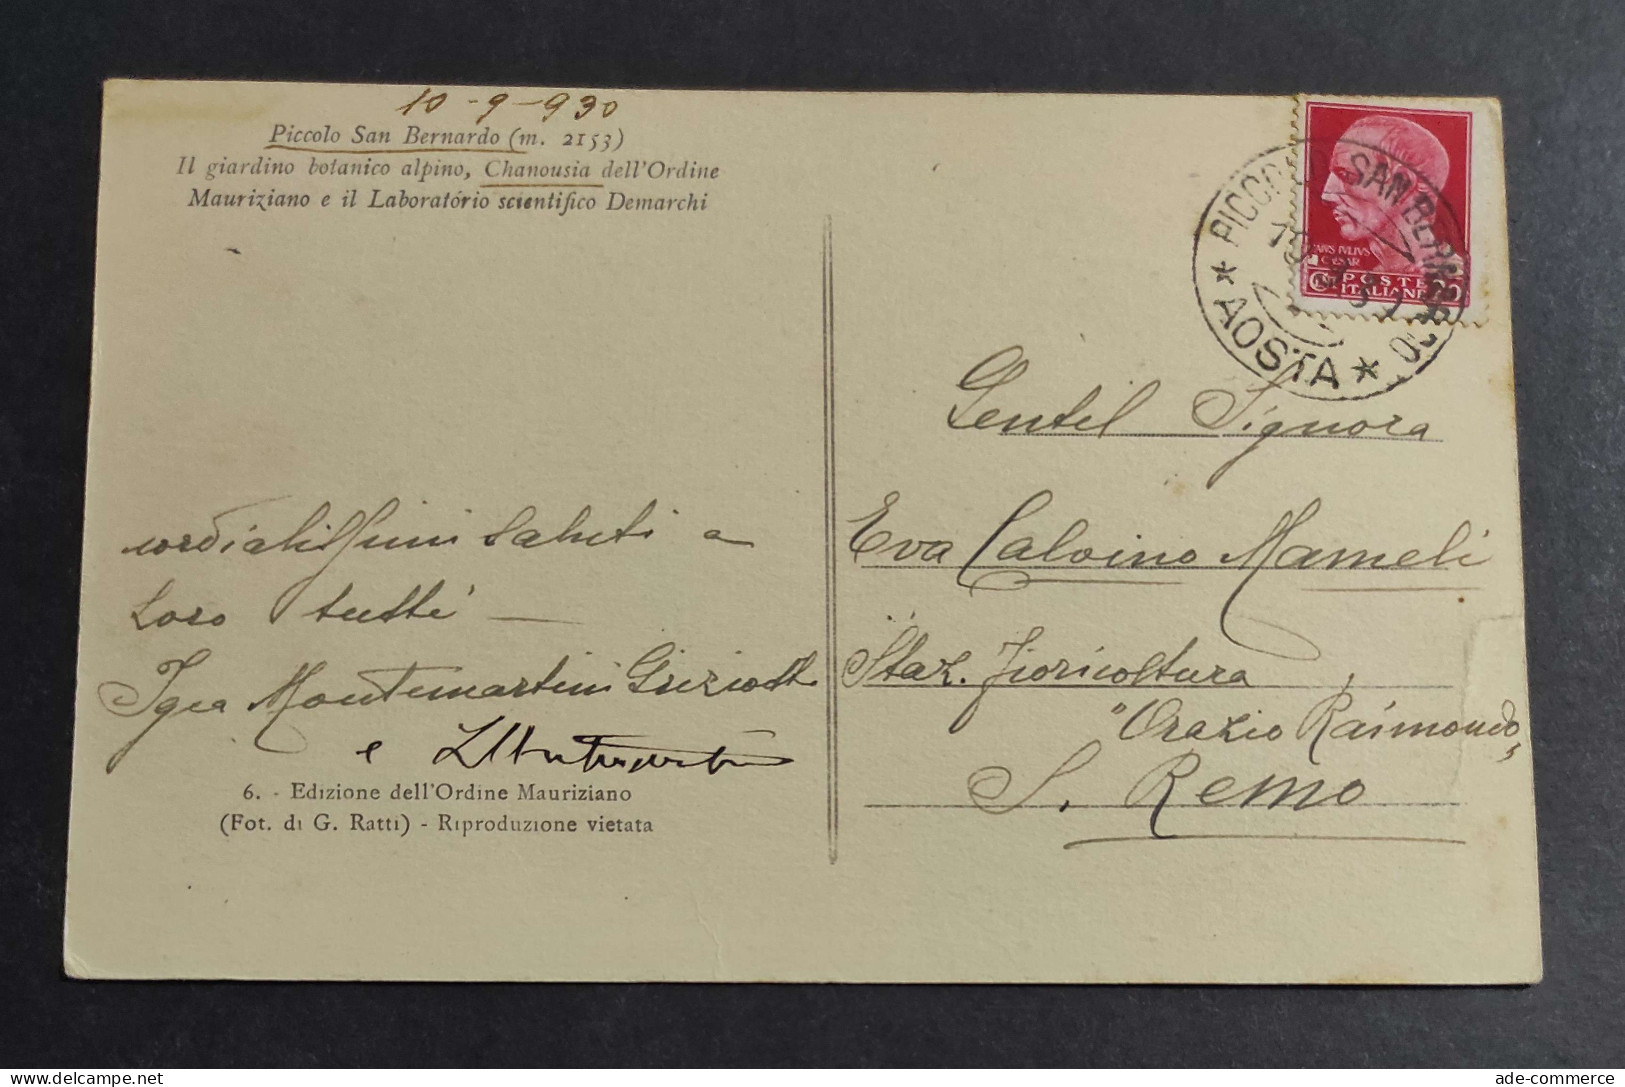 10-9-930
Piccolo San Bernardo (m. 2153)
Il giardino botanico alpino, Chanousia dell'Ordine
Mauriziano e il Laboratório scientifico Demarchi
cordialissimi saluti a
Loro tutti
Igea Montemartini
e
6. - Edizione dell'Ordine Mauriziano
(Fot. di G. Ratti) - Riproduzione vietata
PICCOLO SAN BERNARDO
* AOSTA *
POSTE
ITALIANE
Gentil Signora
Eva Calvino Mameli
Staz. Fioricoltura
"Orazio Raimondo"
S. Remo
ade-commerce